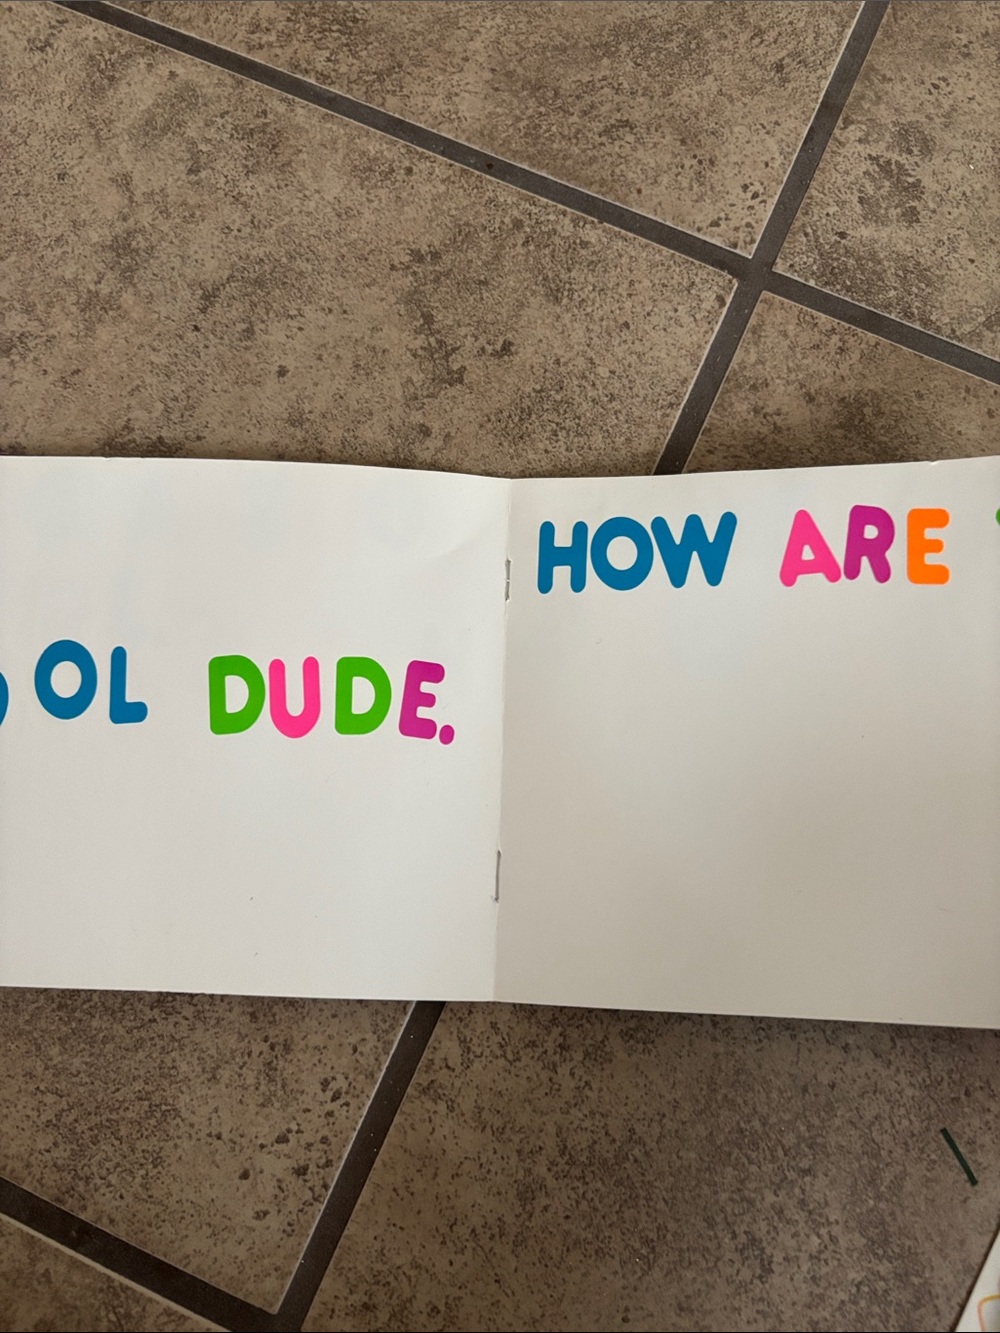 OOL DUDE.
HOW ARE